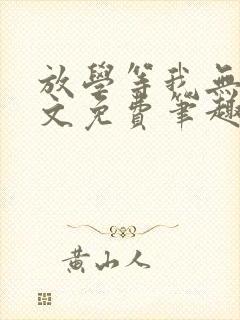 放學等我無
文免費筆趣
黃山人